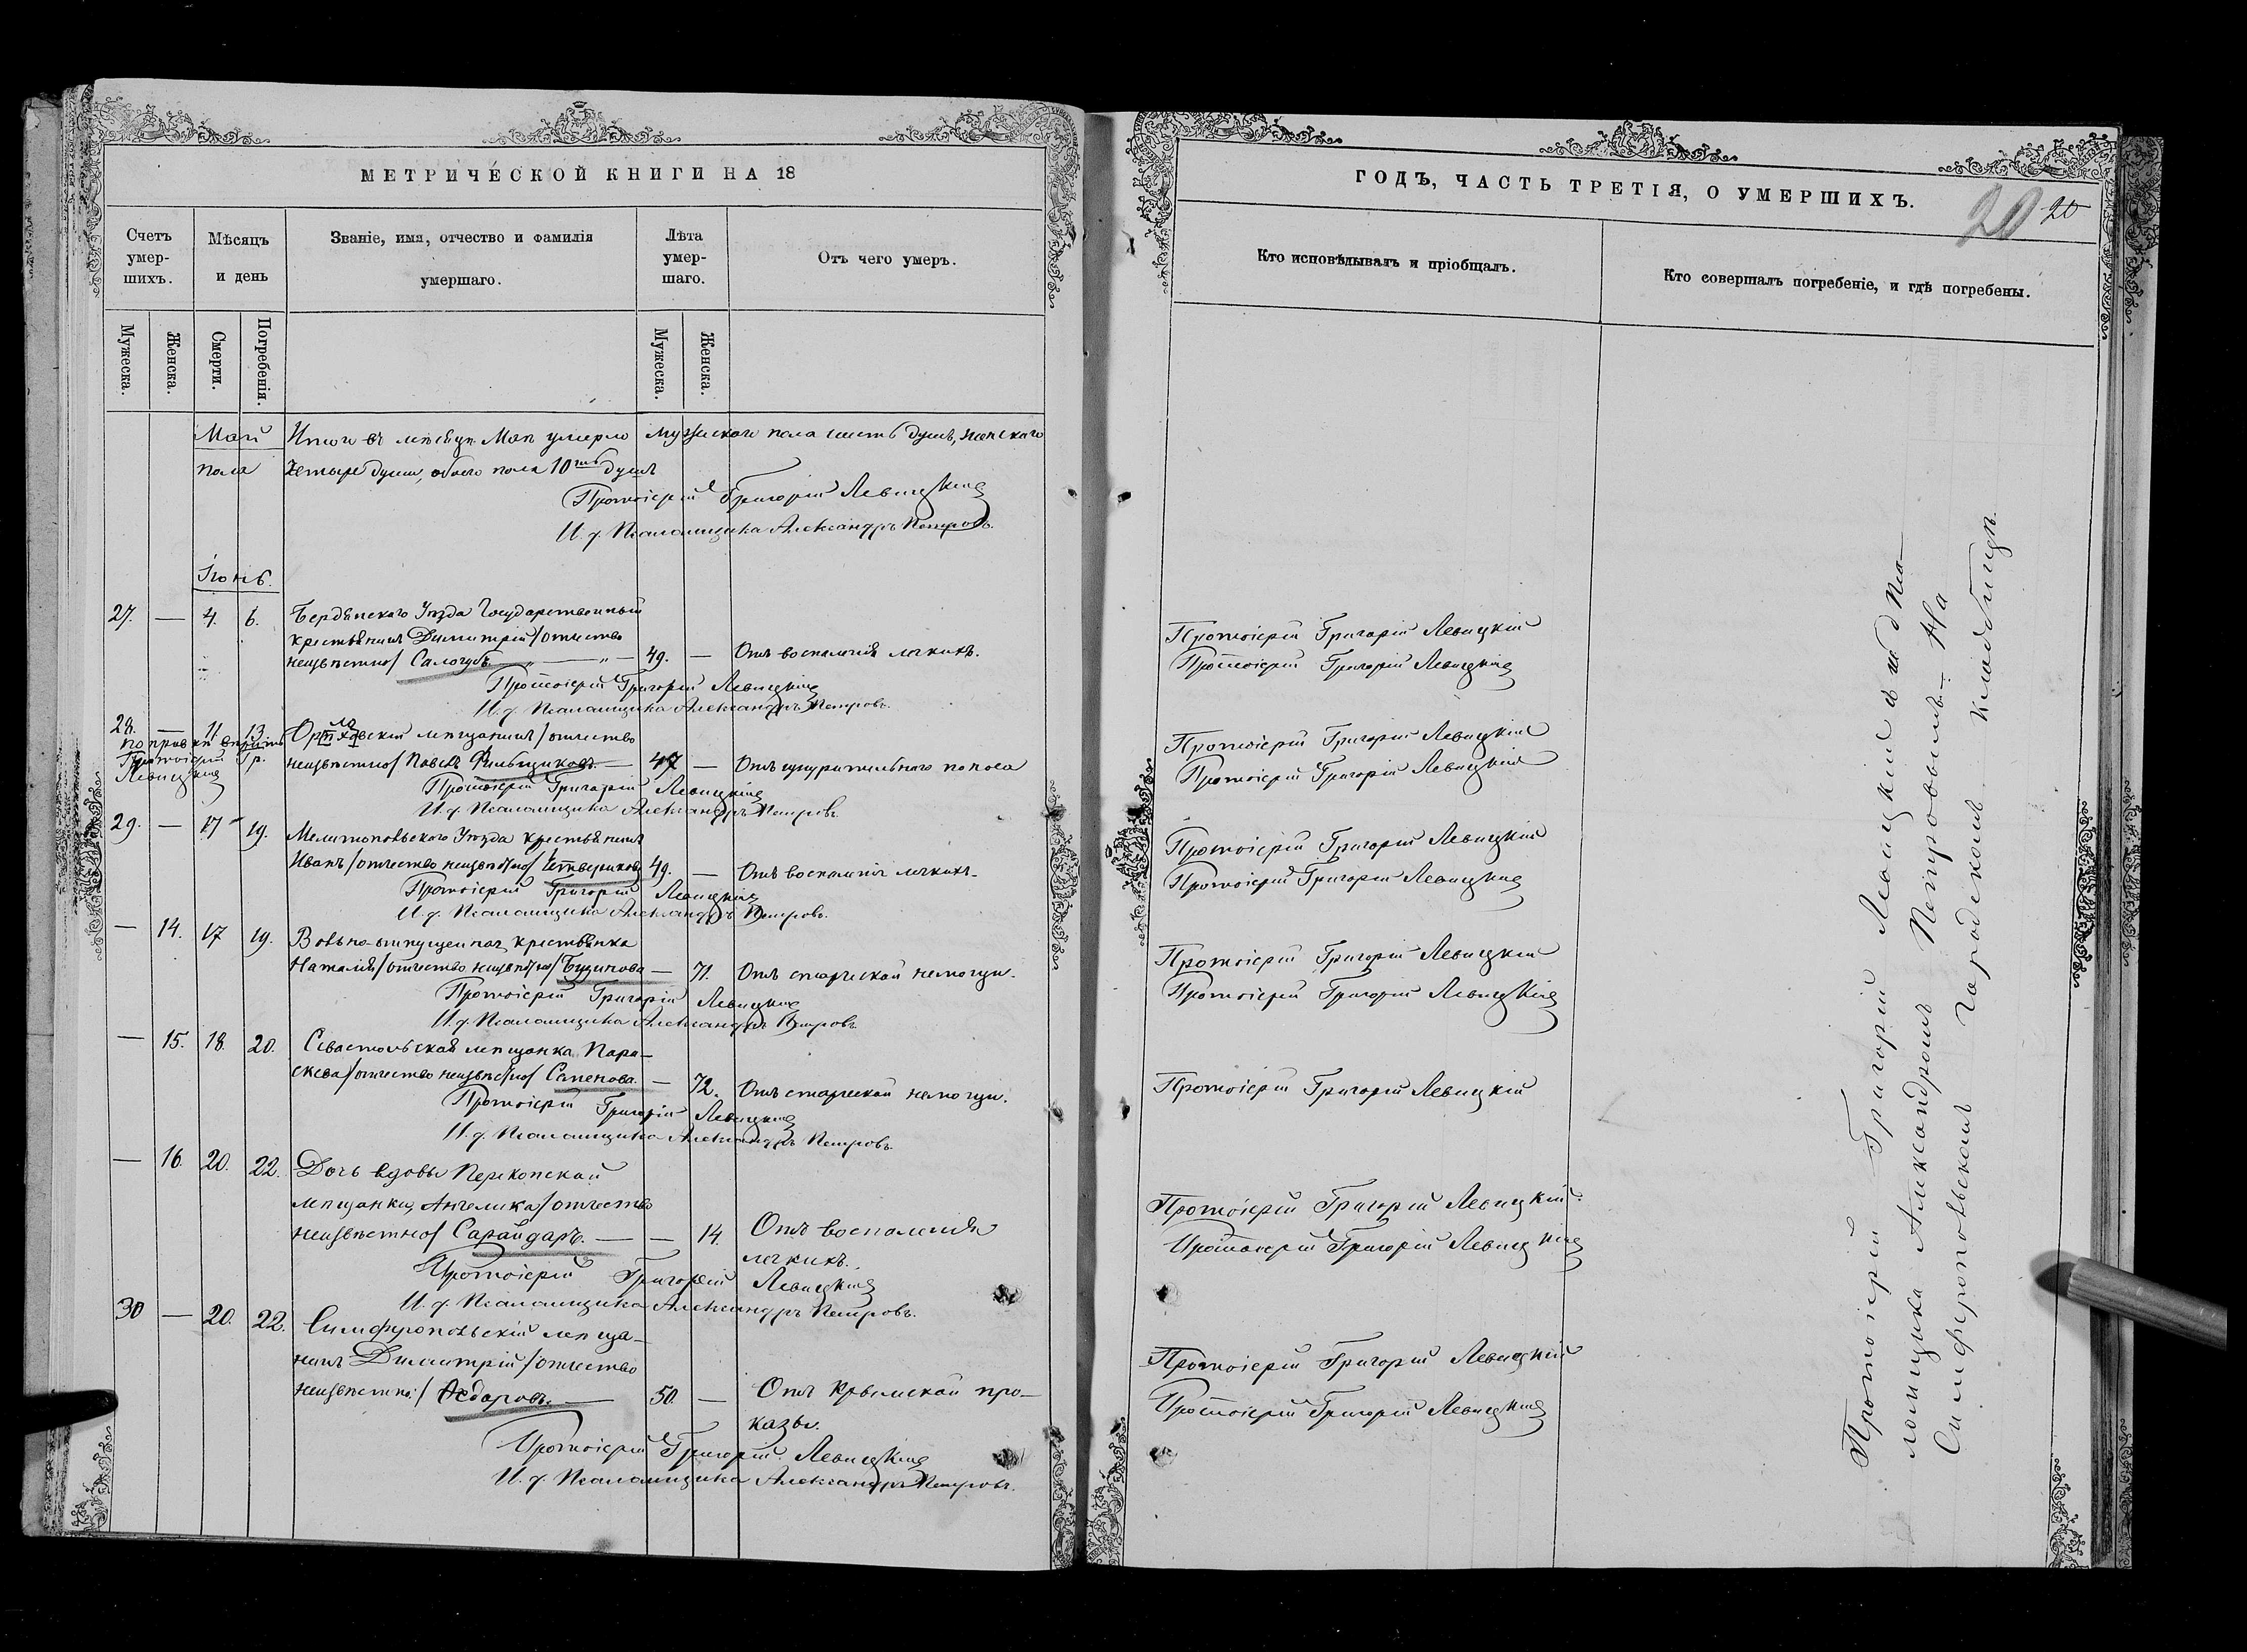 МЕТРИЧЕСКОЙ КНИГИ НА 18
Счетъ умер-шихъ.
Мѣсяцъ и день
Званіе, имя, отчество и фамилія умершаго.
Лѣта умер-шаго.
Отъ чего умеръ.
Мужеска.
Женска.
Смерти.
Погребенія.
Мужеска.
Женска.
Май Итого въ мѣсяцѣ Маѣ умерло мужескаго пола шесть душъ, женскаго
пола четыре души, обоего пола 10ть душъ
Протоіерей Григорій Левицкій
И. д. Псаломщика Александръ Петровъ.
Іюнь.
27. — 4. 6. Бердянскаго Уѣзда Государственный
крестьянинъ Димитрій /отчество
неизвѣстно/ Салогубъ — „ — „ — 49. — Отъ воспаленія легкихъ.
Протоіерей Григорій Левицкій
И. д. Псаломщика Александръ Петровъ.
28. — 11. 13. мѣщанинъ /отчество
по правкѣ вѣрить
Протоіерей Гр.
Левицкій
неизвѣстно/ Павелъ — 47 — Отъ изнурительнаго поноса
Протоіерей Григорій Левицкій
И. д. Псаломщика Александръ Петровъ.
29. — 17 19. Мелитопольскаго Уѣзда крестьянинъ
Иванъ /отчество неизвѣстно/ Четвериковъ 49. — Отъ воспаленія легкихъ.
Протоіерей Григорій Левицкій
И. д. Псаломщика Александръ Петровъ.
— 14. 17 19. Вольно-отпущенная крестьянка
Наталія /отчество неизвѣстно/ Бузинова — 71. Отъ старческой немощи.
Протоіерей Григорій Левицкій
И. д. Псаломщика Александръ Петровъ
— 15. 18. 20. мѣщанка Пара-
скева /отчество неизвѣстно/ Сапенова. — 72. Отъ старческой немощи.
Протоіерей Григорій Левицкій
И. д. Псаломщика Александръ Петровъ.
— 16. 20. 22. Дочь вдовы Перекопской
мѣщанки, Ангелика /отчество
неизвѣстно/ Сарайдаръ. — — 14. Отъ воспаленія
легкихъ.
Протоіерей Григорій Левицкій
И. д. Псаломщика Александръ Петровъ.
30 — 20. 22. Симферопольскій мѣща-
нинъ Димитрій /отчество
неизвѣстно:/ — 50. — Отъ Крымской про-
казы.
Протоіерей Григорій Левицкій
И. д. Псаломщика Александръ Петровъ.
ГОДЪ, ЧАСТЬ ТРЕТІЯ, О УМЕРШИХЪ.
20 20
Кто исповѣдывалъ и пріобщалъ.
Кто совершалъ погребеніе, и гдѣ погребены.
Протоіерей Григорій Левицкій
Протоіерей Григорій Левицкій
Протоіерей Григорій Левицкій
Протоіерей Григорій Левицкій
Протоіерей Григорій Левицкій
Протоіерей Григорій Левицкій
Протоіерей Григорій Левицкій
Протоіерей Григорій Левицкій
Протоіерей Григорій Левицкій
Протоіерей Григорій Левицкій.
Протоіерей Григорій Левицкій
Протоіерей Григорій Левицкій
Протоіерей Григорій Левицкій
Протоіерей Григорій Левицкій съ и. д. Пса-
ломщика Александромъ Петровымъ. На
Симферопольскомъ городскомъ кладбищѣ.